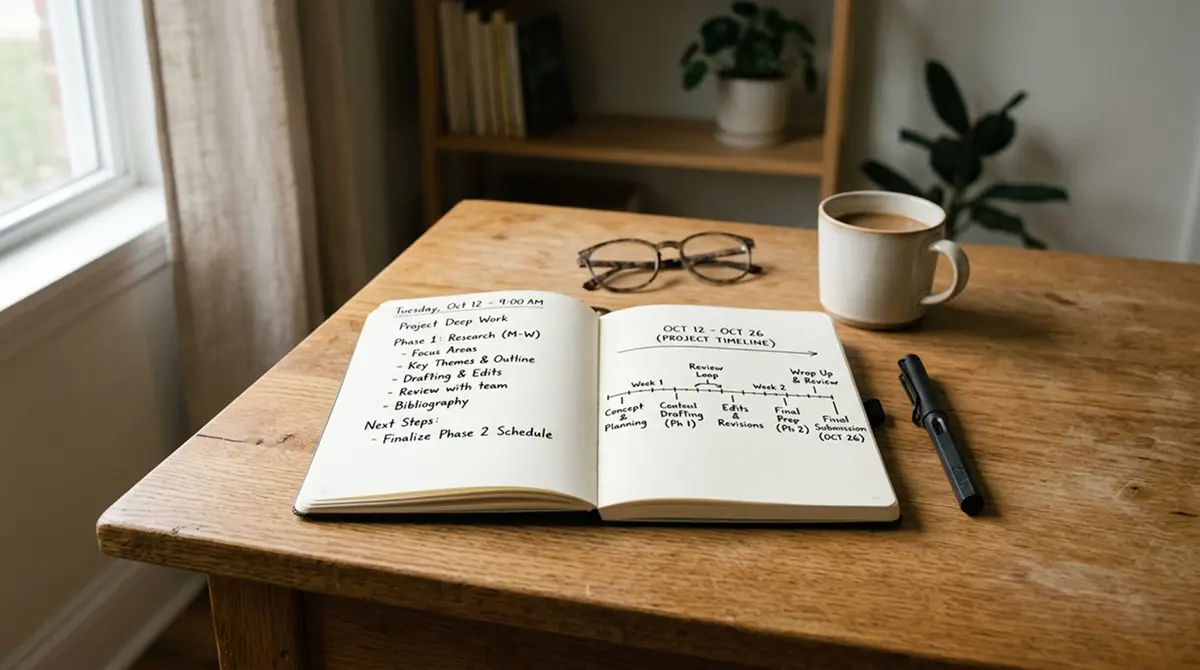 Tuesday, Oct 12 - 9:00 AM
Project Deep Work
Phase 1: Research (M-W)
- Focus Areas
- Key Themes & Outline
- Drafting & Edits
- Review with team
- Bibliography
Next Steps:
- Finalize Phase 2 Schedule
OCT 12 - OCT 26
(PROJECT TIMELINE)
Review
Loop
Wrap Up
& Review
Week 1
Week 2
Concept
&
Planning
Drafting
(Ph 1)
Edits
&
Revisions
Final
Prep
(Ph 2)
Final
Submission
(OCT 26)